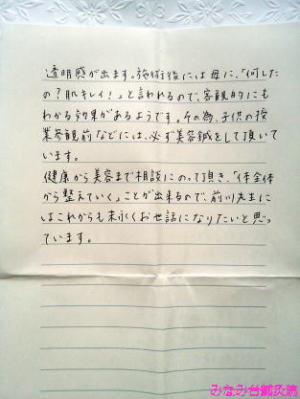 透明感が出ます。施術後には母に、「何した
の?肌キレイ!」と言われるので、客観的にも
わかる効果があるようです。その為、子供の授
業参観前などには、必ず美容鍼をして頂いて
います。
健康から美容まで相談にのって頂き、「体全体
から整えていく」ことが出来るので、前川先生に
はこれからも末永くお世話になりたいと思っ
ています。
みなみ台鍼灸院